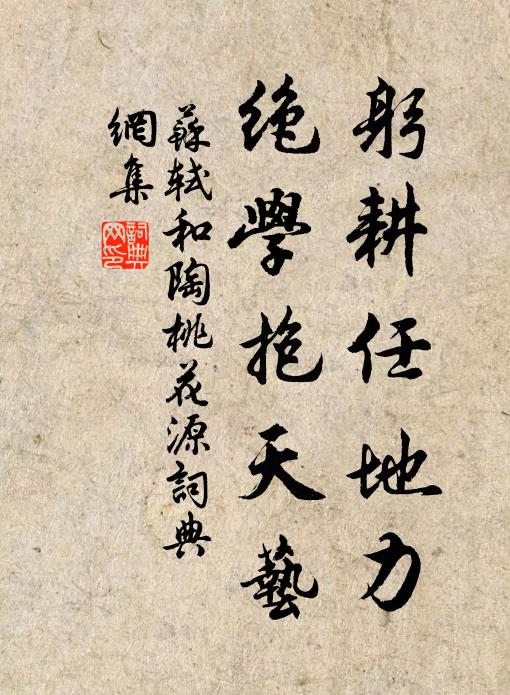 躬耕任地力
絶學抱天藝
蘇軾和陶桃花源詞典
網集
詞典
网印